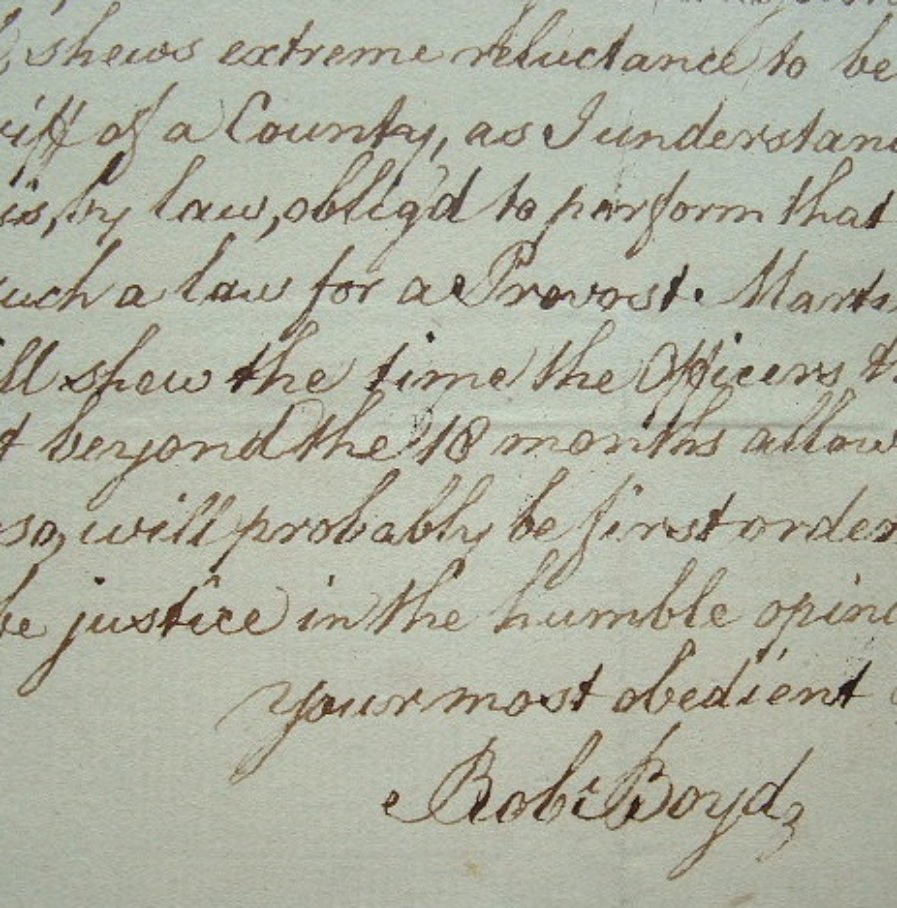 shews extreme reluctance to be
riff of a County, as I understan
is, by law, oblig'd to perform that
such a law for a Provost. Marts
ill shew the time the Officers th
t beyond the 18 months allow
so, will probably be first order
be justice in the humble opin
Your most obedient
Robt Boyd